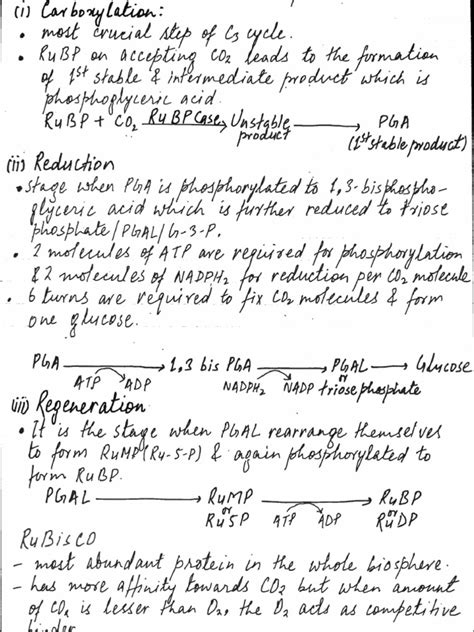 (i) Carboxylation:
• most crucial step of C3 cycle.
• RuBP on accepting CO2 leads to the formation
of 1st stable & intermediate product which is
phosphoglyceric acid.
RuBP + CO2 RuBPCase Unstable product → PGA
(1st stable product)
(ii) Reduction
• stage when PGA is phosphorylated to 1,3-bisphospho-
glyceric acid which is further reduced to triose
phosphate/PGAL/G-3-P.
• 2 molecules of ATP are required for phosphorylation
& 2 molecules of NADPH2 for reduction per CO2 molecule
• 6 turns are required to fix CO2 molecules & form
one glucose.
PGA → 1,3 bis PGA → PGAL → Glucose
ATP ADP NADPH2 NADP or triose phosphate
(iii) Regeneration
• It is the stage when PGAL rearrange themselves
to form RuMP (Ru-5-P) & again phosphorylated to
form RuBP.
PGAL → RuMP → RuBP
or Ru5P ATP ADP or RuDP
RuBisCO
- most abundant protein in the whole biosphere.
- has more affinity towards CO2 but when amount
of CO2 is lesser than O2, the O2 acts as competitive